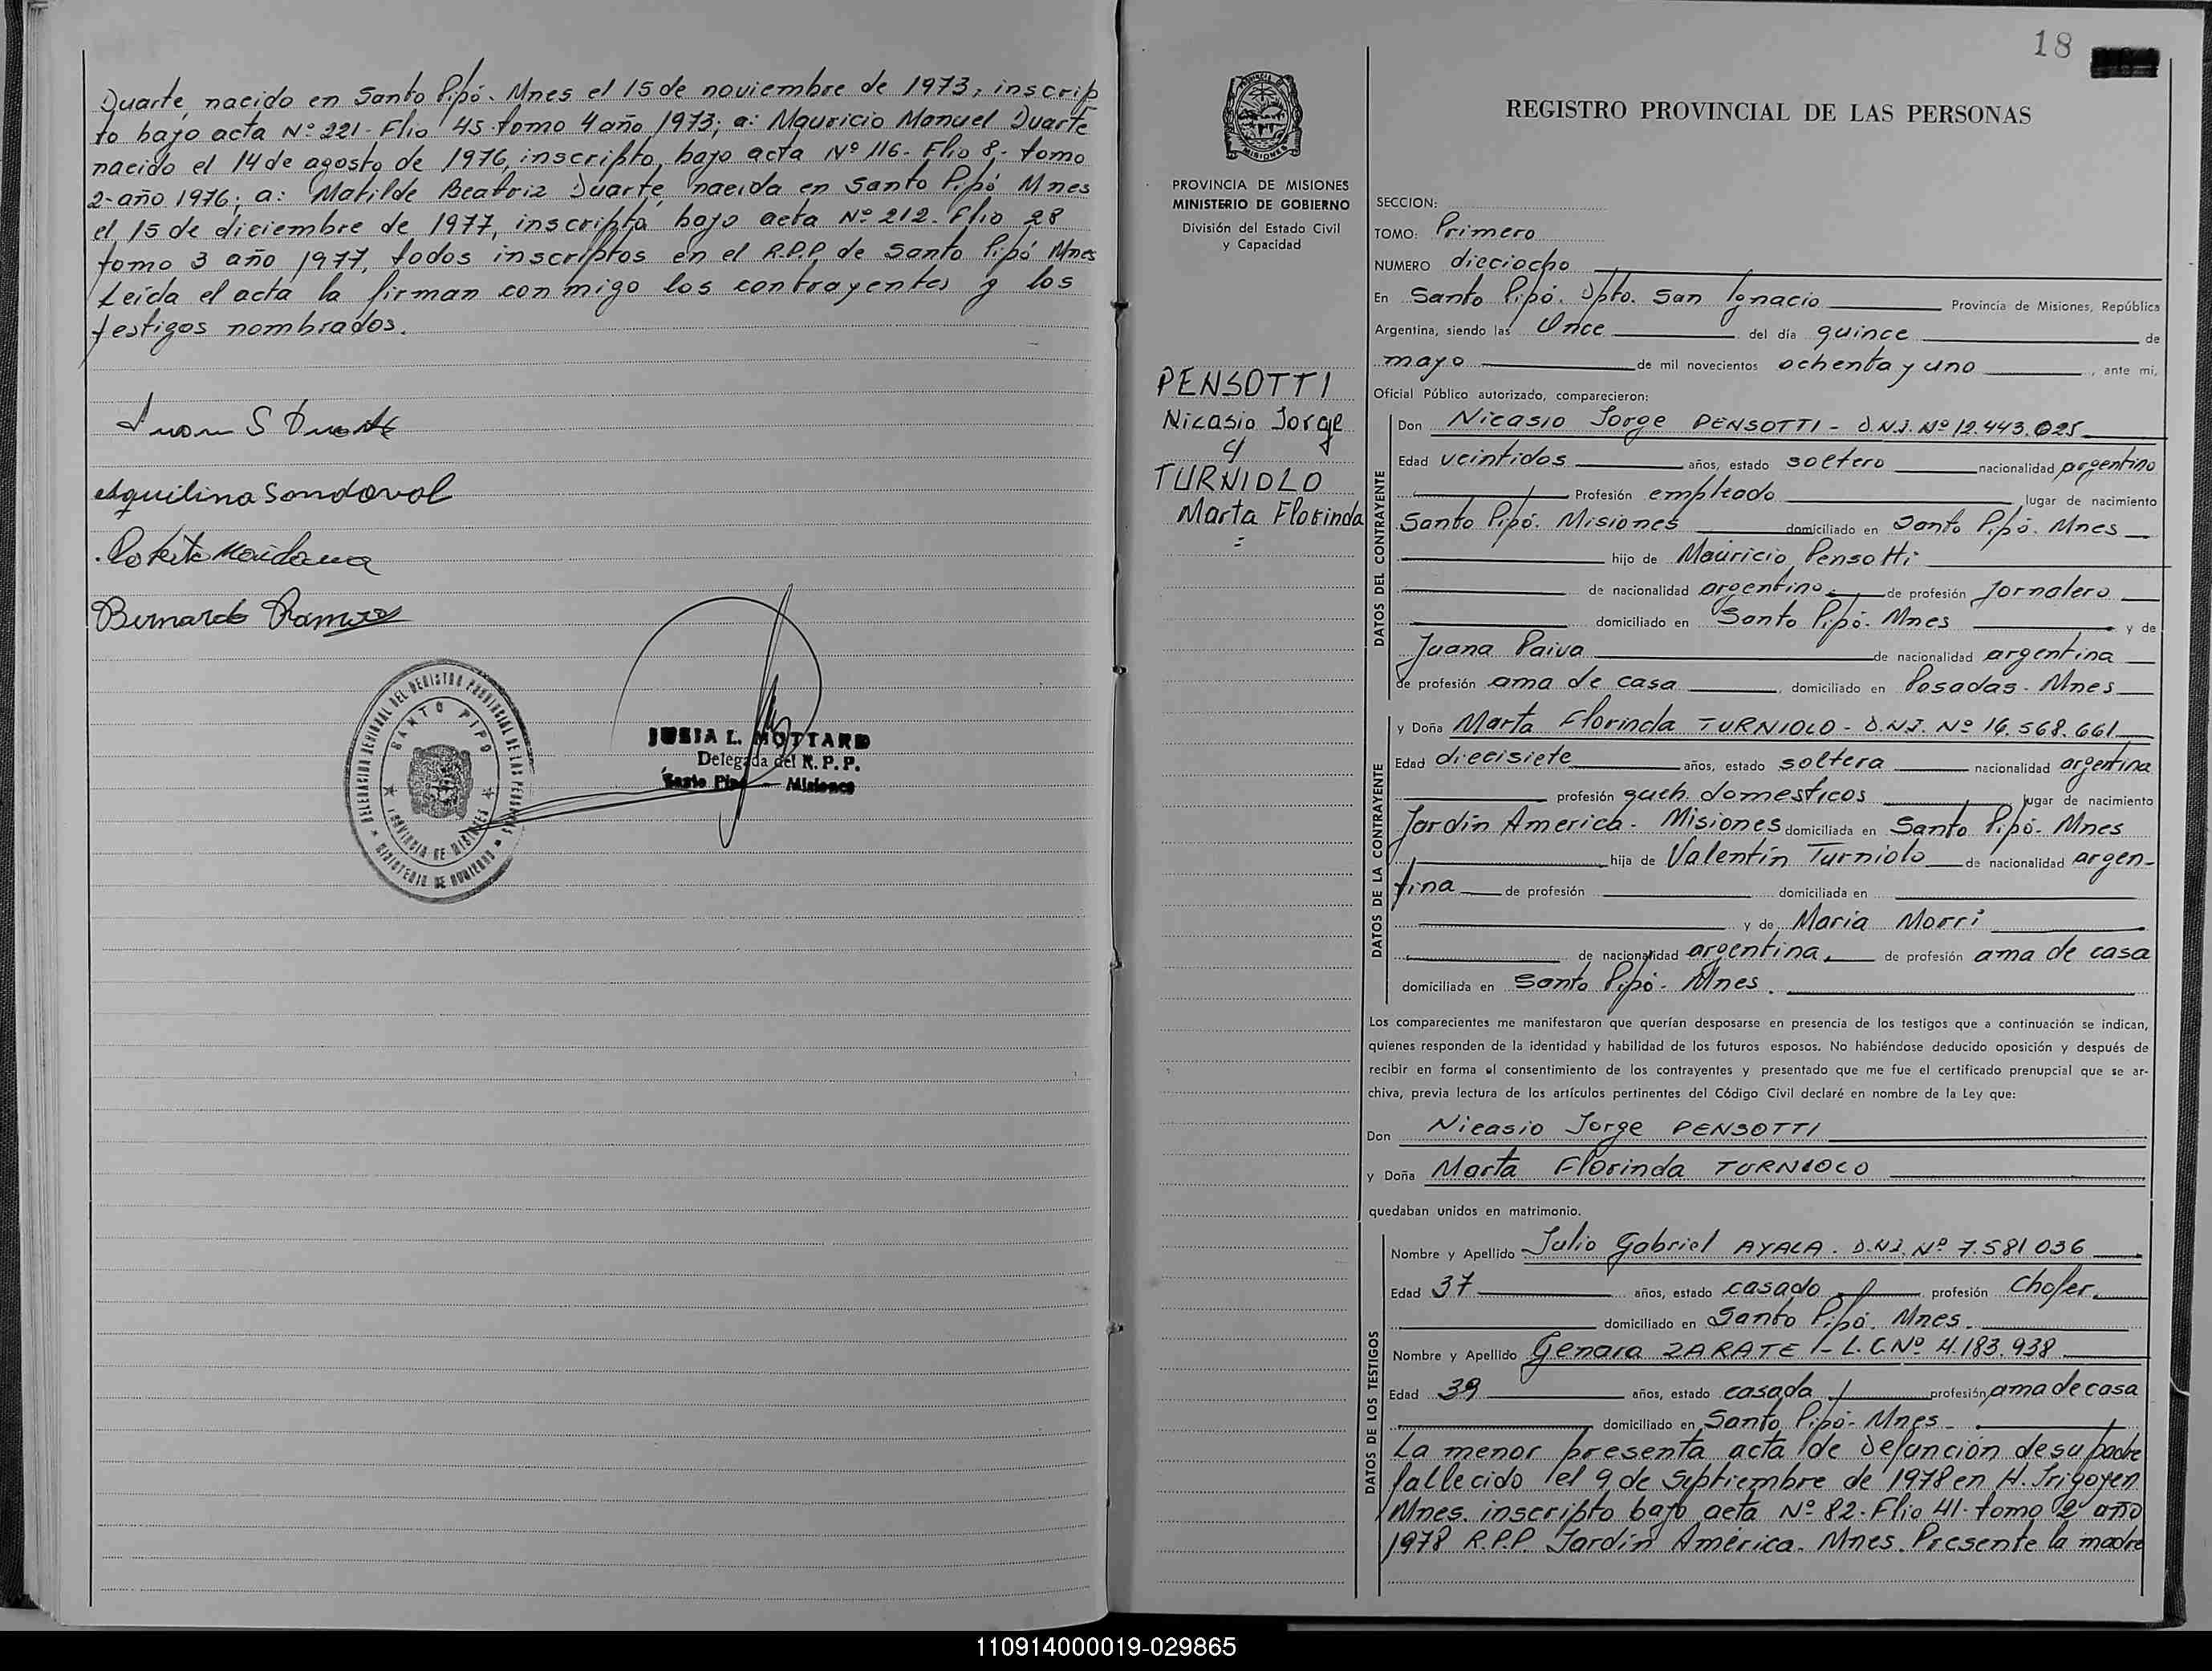 Duarte, nacido en Santo Pipó. Mnes el 15 de noviembre de 1973, inscrip
to bajo acta Nº 221. Flio 45. tomo 4 año 1973; a: Mauricio Manuel Duarte
nacido el 14 de agosto de 1976, inscripto, bajo acta Nº 116. Flio 8. tomo
2-año 1976; a: Matilde Beatriz Duarte, nacida en Santo Pipó Mnes
el 15 de diciembre de 1977, inscripta bajo acta Nº 212. Flio 28
tomo 3 año 1977, todos inscriptos en el R.P.P. de Santo Pipó Mnes
Leída el acta la firman conmigo los contrayentes y los
testigos nombrados.
Juan S Duarte
Aquilina Sandoval
Maidana
Bernardo Ramirez
DELEGACION DEL REGISTRO PROVINCIAL DE LAS PERSONAS
SANTO PIPO
PROVINCIA DE MISIONES
MINISTERIO DE GOBIERNO
L. MOTTARD
Delegada del R. P. P.
Santo Pipó — Misiones
18
PROVINCIA DE MISIONES
MINISTERIO DE GOBIERNO
División del Estado Civil
y Capacidad
PENSOTTI
Nicasio Jorge
c/
TURNIOLO
Marta Florinda
=
REGISTRO PROVINCIAL DE LAS PERSONAS
SECCION:
TOMO: Primero
NUMERO dieciocho
En Santo Pipó. Dpto. San Ignacio Provincia de Misiones, República
Argentina, siendo las Once del día quince de
mayo de mil novecientos ochenta y uno, ante mi,
Oficial Público autorizado, comparecieron:
DATOS DEL CONTRAYENTE
Don Nicasio Jorge PENSOTTI - D.N.I. Nº 12.443.025
Edad veintidos años, estado soltero nacionalidad argentino
Profesión empleado lugar de nacimiento
Santo Pipó. Misiones domiciliado en Santo Pipó. Mnes
hijo de Mauricio Pensotti
de nacionalidad argentino de profesión Jornalero
domiciliado en Santo Pipó. Mnes y de
Juana Paiva de nacionalidad argentina
de profesión ama de casa, domiciliado en Posadas. Mnes
DATOS DE LA CONTRAYENTE
y Doña Marta Florinda TURNIOLO - D.N.I. Nº 16.568.661
Edad diecisiete años, estado soltera nacionalidad argentina
profesión queh. domesticos lugar de nacimiento
Jardín America. Misiones domiciliada en Santo Pipó. Mnes
hija de Valentín Turniolo de nacionalidad argen-
tina de profesión domiciliada en
y de Maria Morri
de nacionalidad argentina, de profesión ama de casa
domiciliada en Santo Pipó. Mnes.
Los comparecientes me manifestaron que querían desposarse en presencia de los testigos que a continuación se indican,
quienes responden de la identidad y habilidad de los futuros esposos. No habiéndose deducido oposición y después de
recibir en forma el consentimiento de los contrayentes y presentado que me fue el certificado prenupcial que se ar-
chiva, previa lectura de los artículos pertinentes del Código Civil declaré en nombre de la Ley que:
Don Nicasio Jorge PENSOTTI
y Doña Marta Florinda TURNIOLO
quedaban unidos en matrimonio.
DATOS DE LOS TESTIGOS
Nombre y Apellido Julio Gabriel AYALA. D.N.I. Nº 7.581 036
Edad 37 años, estado casado profesión Chofer.
domiciliado en Santo Pipó. Mnes.
Nombre y Apellido Genara ZARATE - L.C. Nº 4.183.938
Edad 39 años, estado casada profesión ama de casa
domiciliado en Santo Pipó- Mnes.
La menor presenta acta de defunción de su padre
fallecido el 9 de Septiembre de 1978 en H. Irigoyen
Mnes. inscripto bajo acta Nº 82. Flio 41. tomo 2 año
1978 R.P.P. Jardín América. Mnes. Presente la madre
110914000019-029865